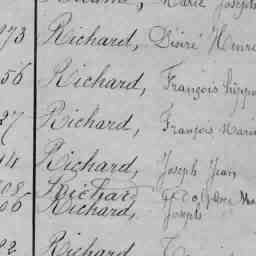 Marie Joseph
973 Richard, Désiré Henri
56 Richard, François
27 Richard, François Marie
14 Richard, Joseph Jean
Richard
66 Richard, Joseph
82 Richard